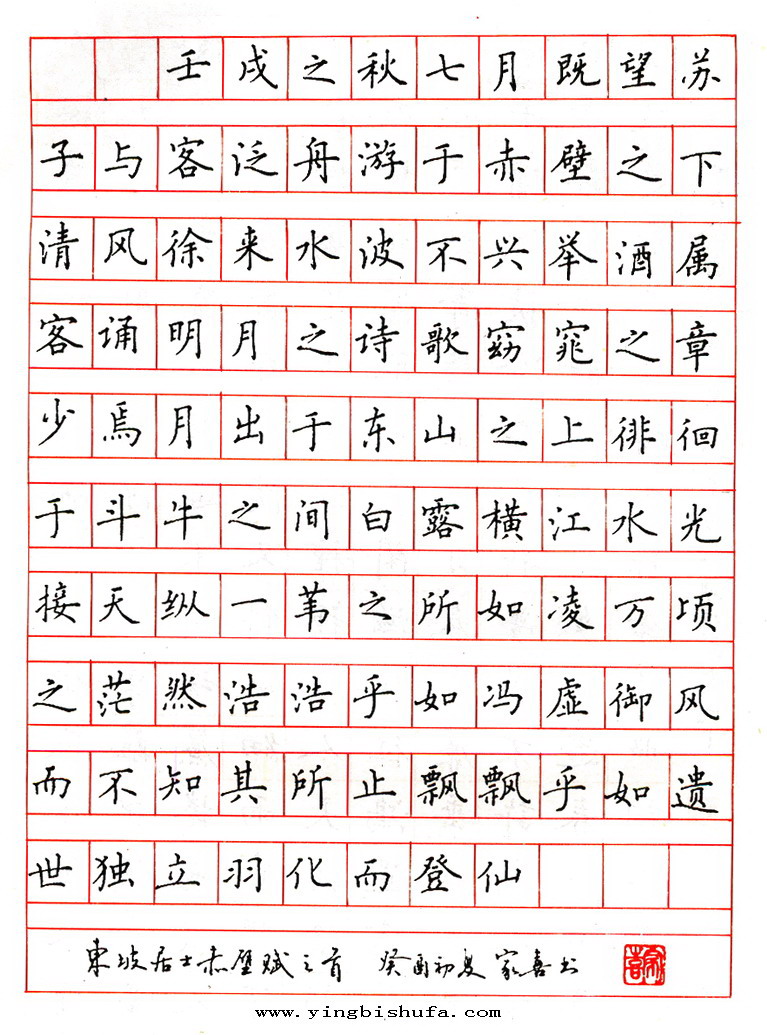 壬戌之秋七月既望苏
子与客泛舟游于赤壁之下
清风徐来水波不兴举酒属
客诵明月之诗歌窈窕之章
少焉月出于东山之上徘徊
于斗牛之间白露横江水光
接天纵一苇之所如凌万顷
之茫然浩浩乎如冯虚御风
而不知其所止飘飘乎如遗
世独立羽化而登仙
東坡居士赤壁赋之首 癸酉初夏 家喜书
家喜
www.yingbishufa.com